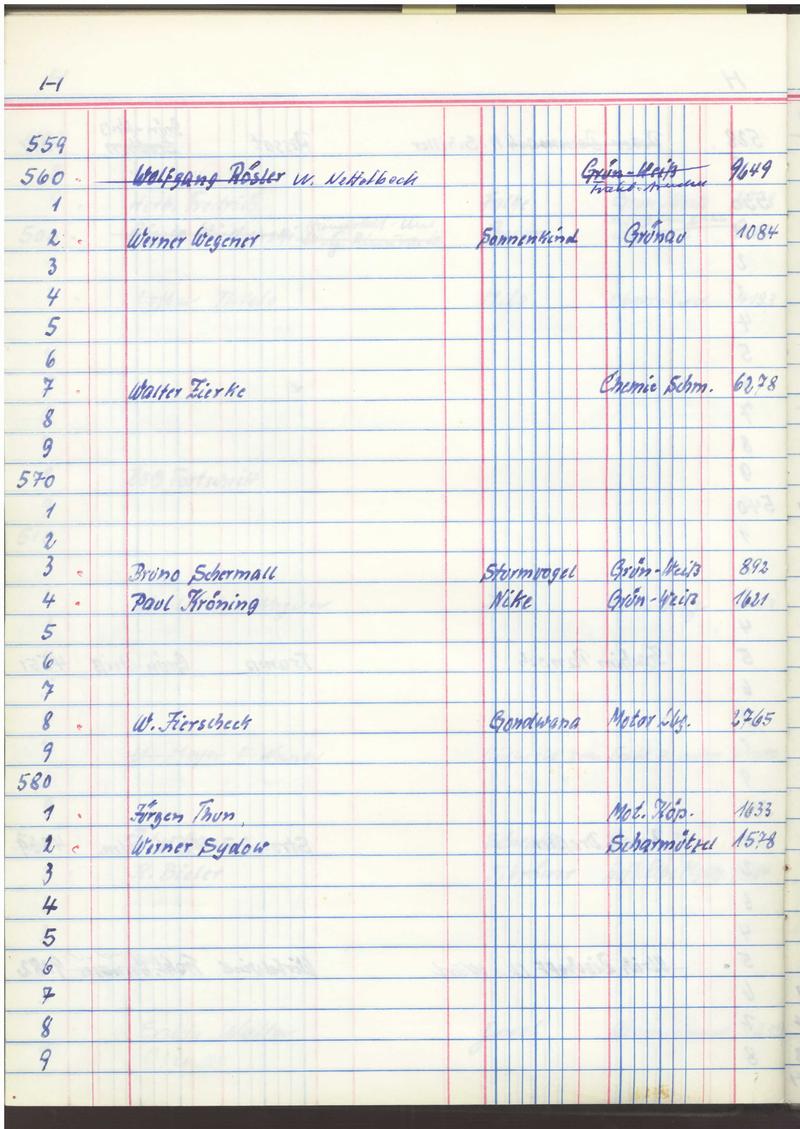 H
559
560 Wolfgang Rösler W. Nettelbeck Grün-Weiß 9649
1
2 Werner Wegener Sonnenkind Grünau 1084
3
4
5
6
7 Walter Zierke Chemie Schm. 6278
8
9
570
1
2
3 Bruno Schermall Sturmvogel Grün-Weiß 892
4 Paul Kröning Nike Grün-Weiß 1621
5
6
7
8 W. Fierscheck Gondwana Motor 2765
9
580
1 Jürgen Thun, Mot. Köp. 1633
2 Werner Sydow Scharmützel 1578
3
4
5
6
7
8
9